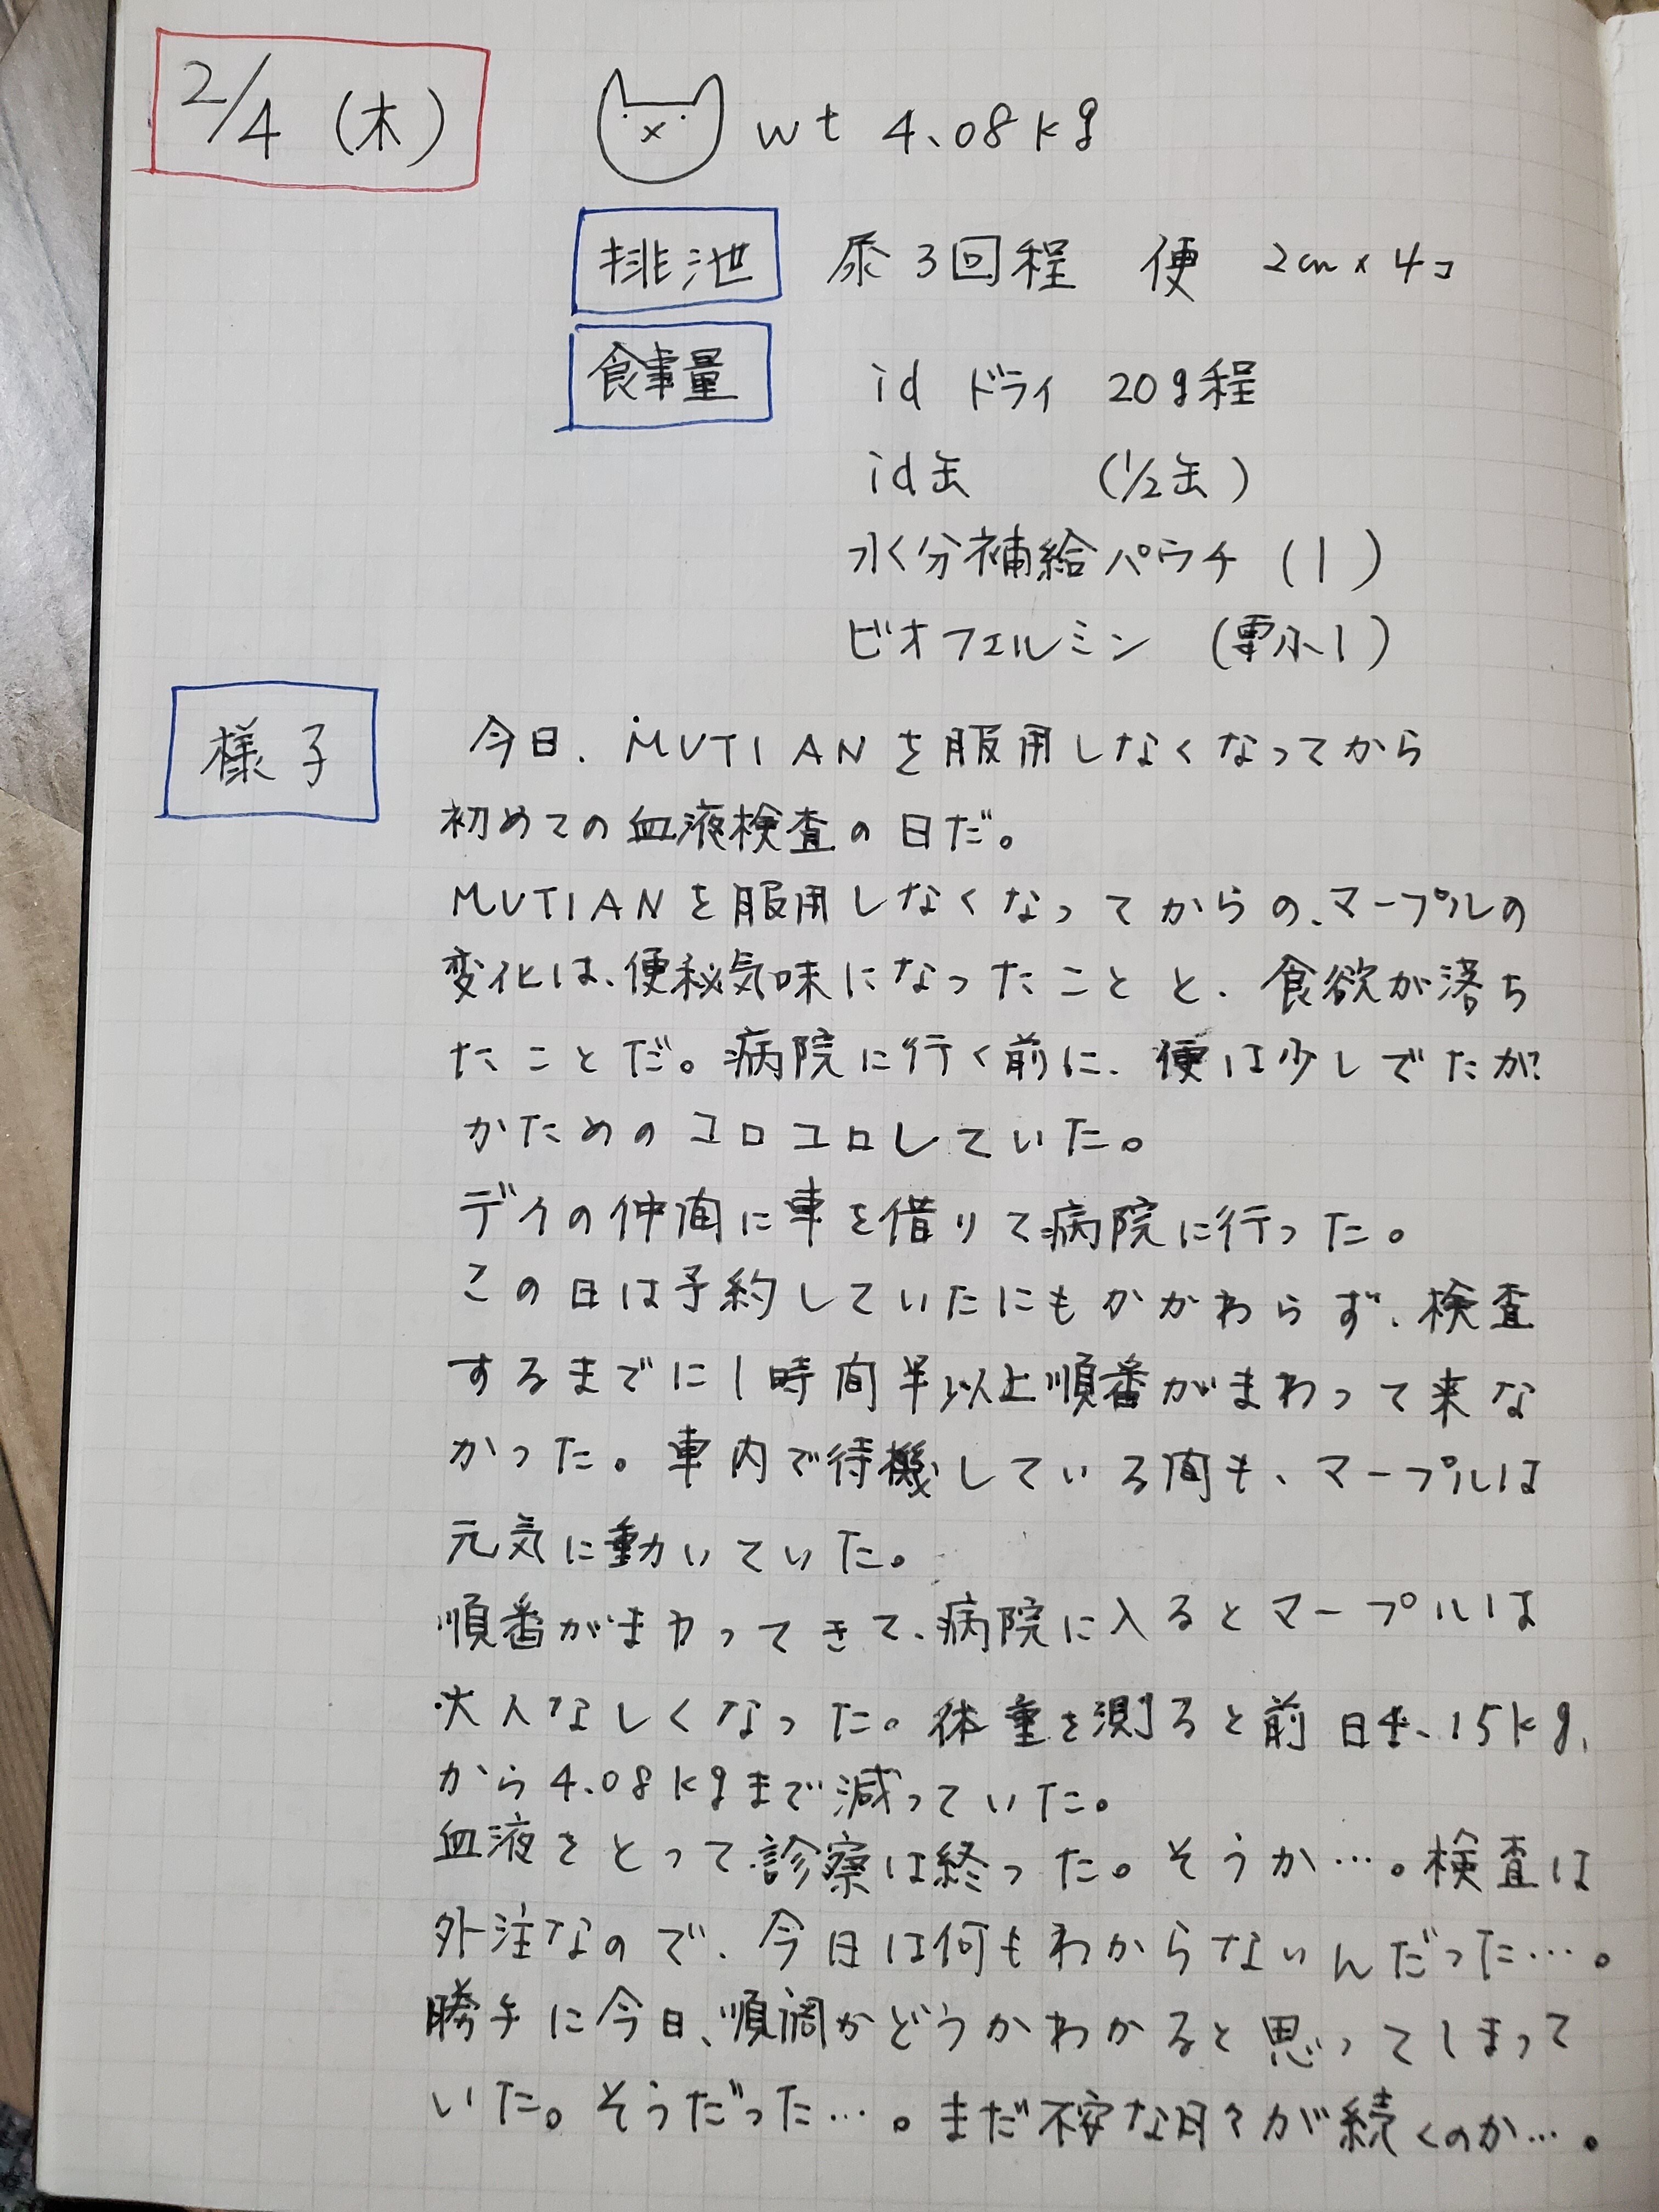 2/4 (木)
wt 4.08kg
排池 尿3回程 便 2cm×4コ
食事量 id ドライ 20g程
id缶 (1/2缶)
水分補給パウチ (1)
ビオフェルミン (1)
様子 今日、MUTIANを服用しなくなってから
初めての血液検査の日だ。
MUTIANを服用しなくなってからの、マープルの
変化は、便秘気味になったことと、食欲が落ち
たことだ。病院に行く前に、便は少しでたが
かためのコロコロしていた。
デイの仲間に車を借りて病院に行った。
この日は予約していたにもかかわらず、検査
するまでに1時間半以上順番がまわって来な
かった。車内で待機している間も、マープルは
元気に動いていた。
順番がまわってきて、病院に入るとマープルは
大人なしくなった。体重を測ると前日4.15kg、
から4.08kgまで減っていた。
血液をとって診察は終った。そうか…。検査は
外注なので、今日は何もわからないんだった…。
勝手に今日、順調かどうかわかると思ってしまって
いた。そうだった…。まだ不安な日々が続くのか…。